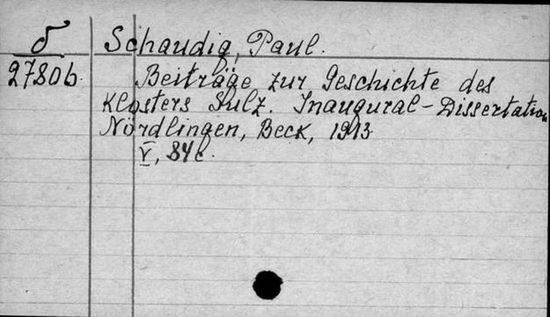 δ Schaudig, Paul.
2780b. Beiträge zur Geschichte des
Klosters Sulz. Inaugural-Dissertation
Nördlingen, Beck, 1913
V, 84 c.